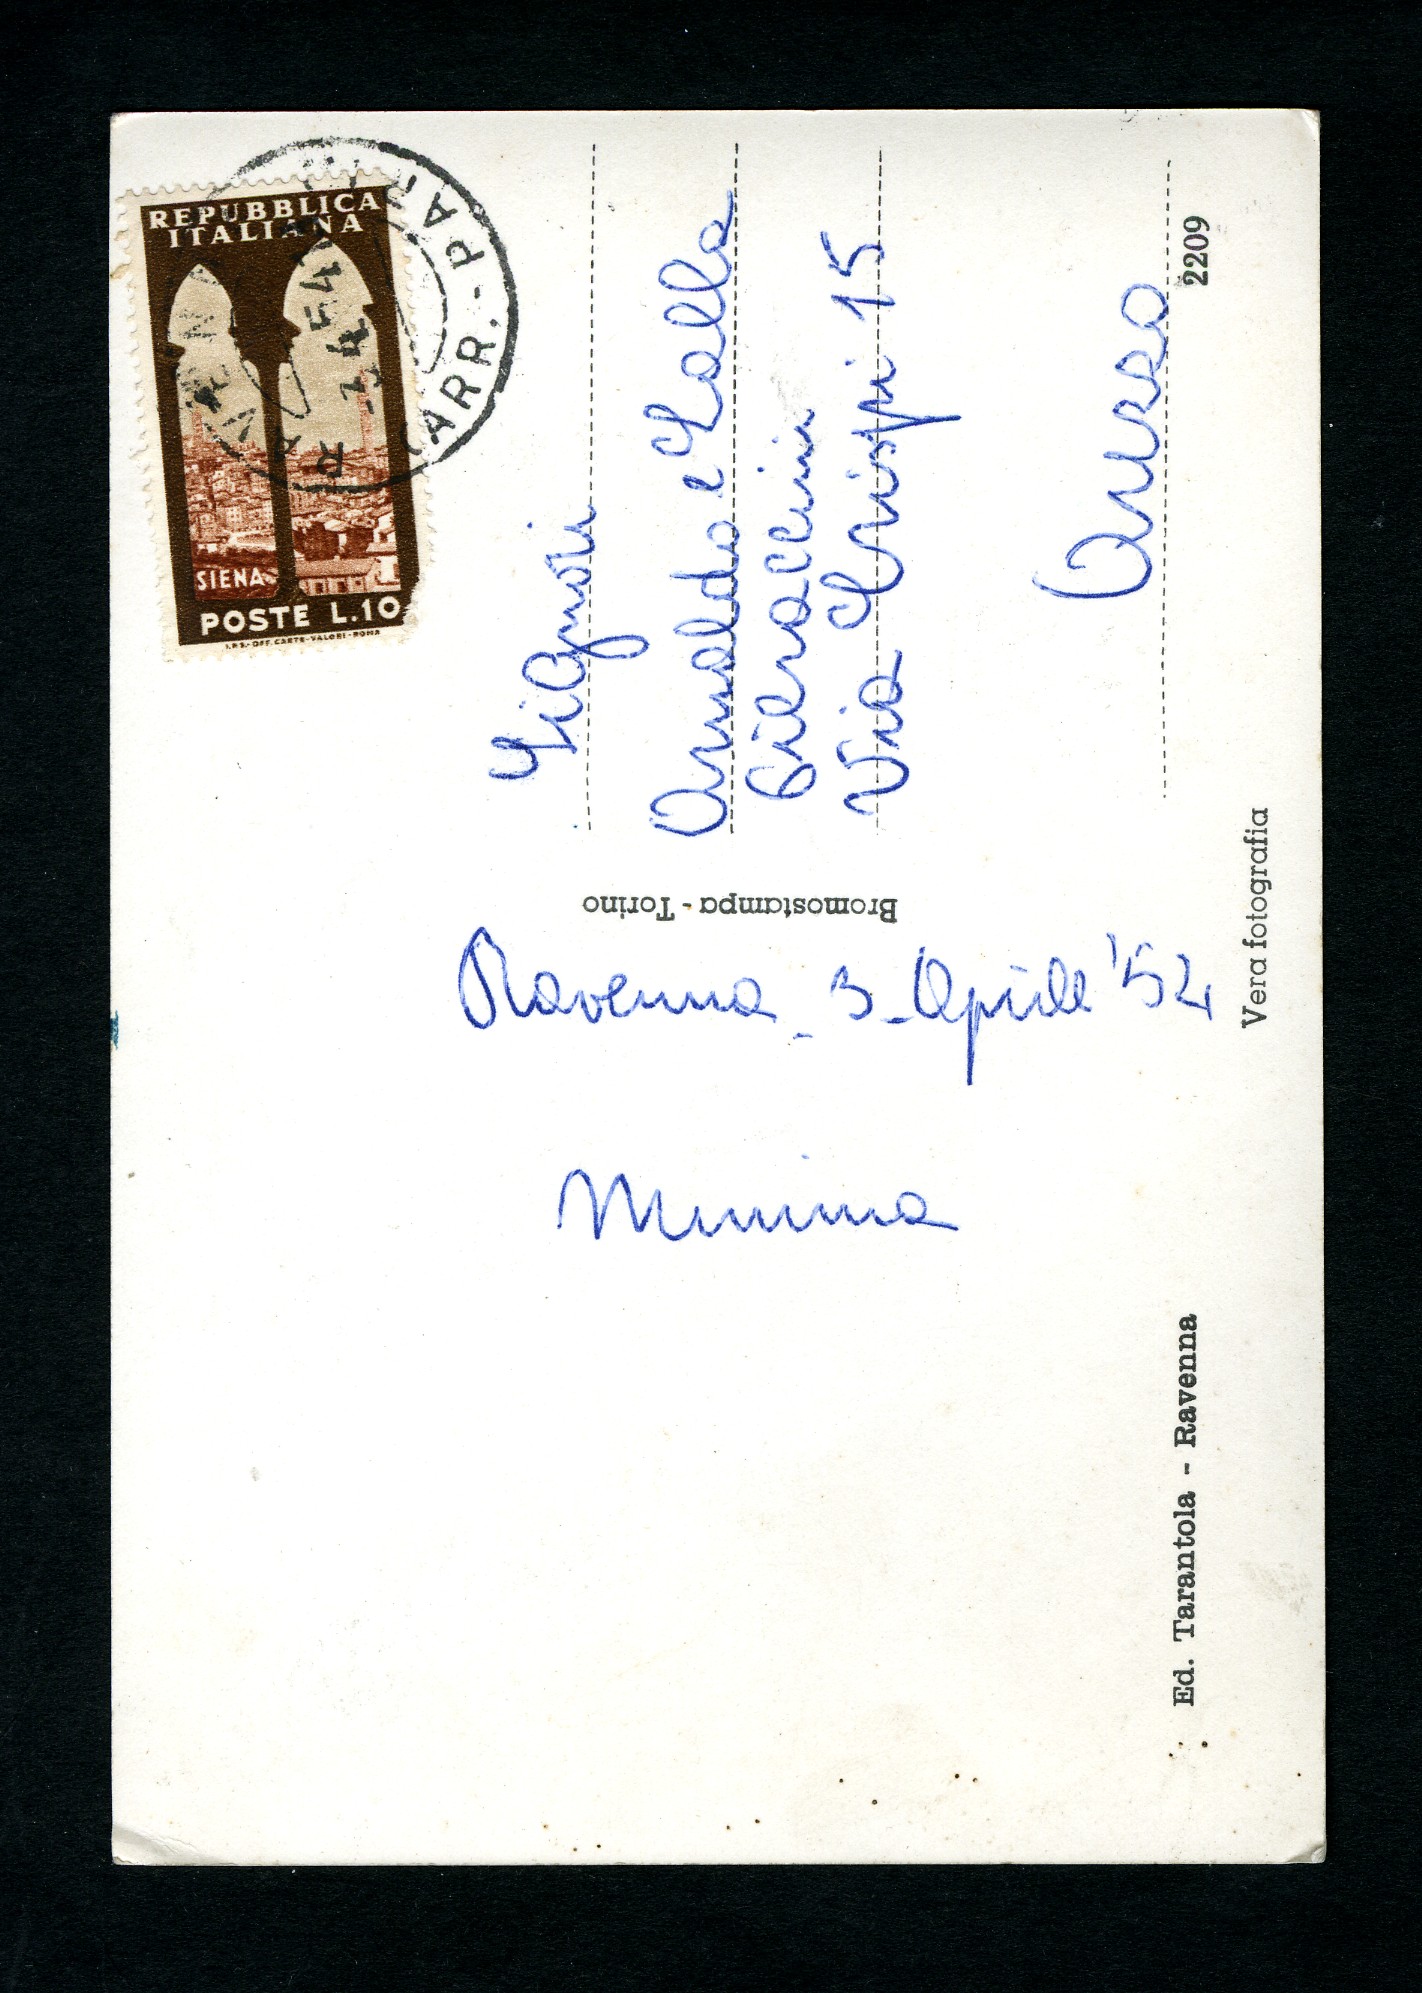 REPUBBLICA
ITALIANA
SIENA
POSTE L.10
I.P.S.-OFF. CARTE-VALORI-ROMA
CARR.-PA
3.4.54
Signori
Arnaldo e Lalla
Via Crispi 15
Arezzo
2209
Bromostampa - Torino
Ravenna - 3 - Aprile '54
Mimma
Vera fotografia
Ed. Tarantola - Ravenna